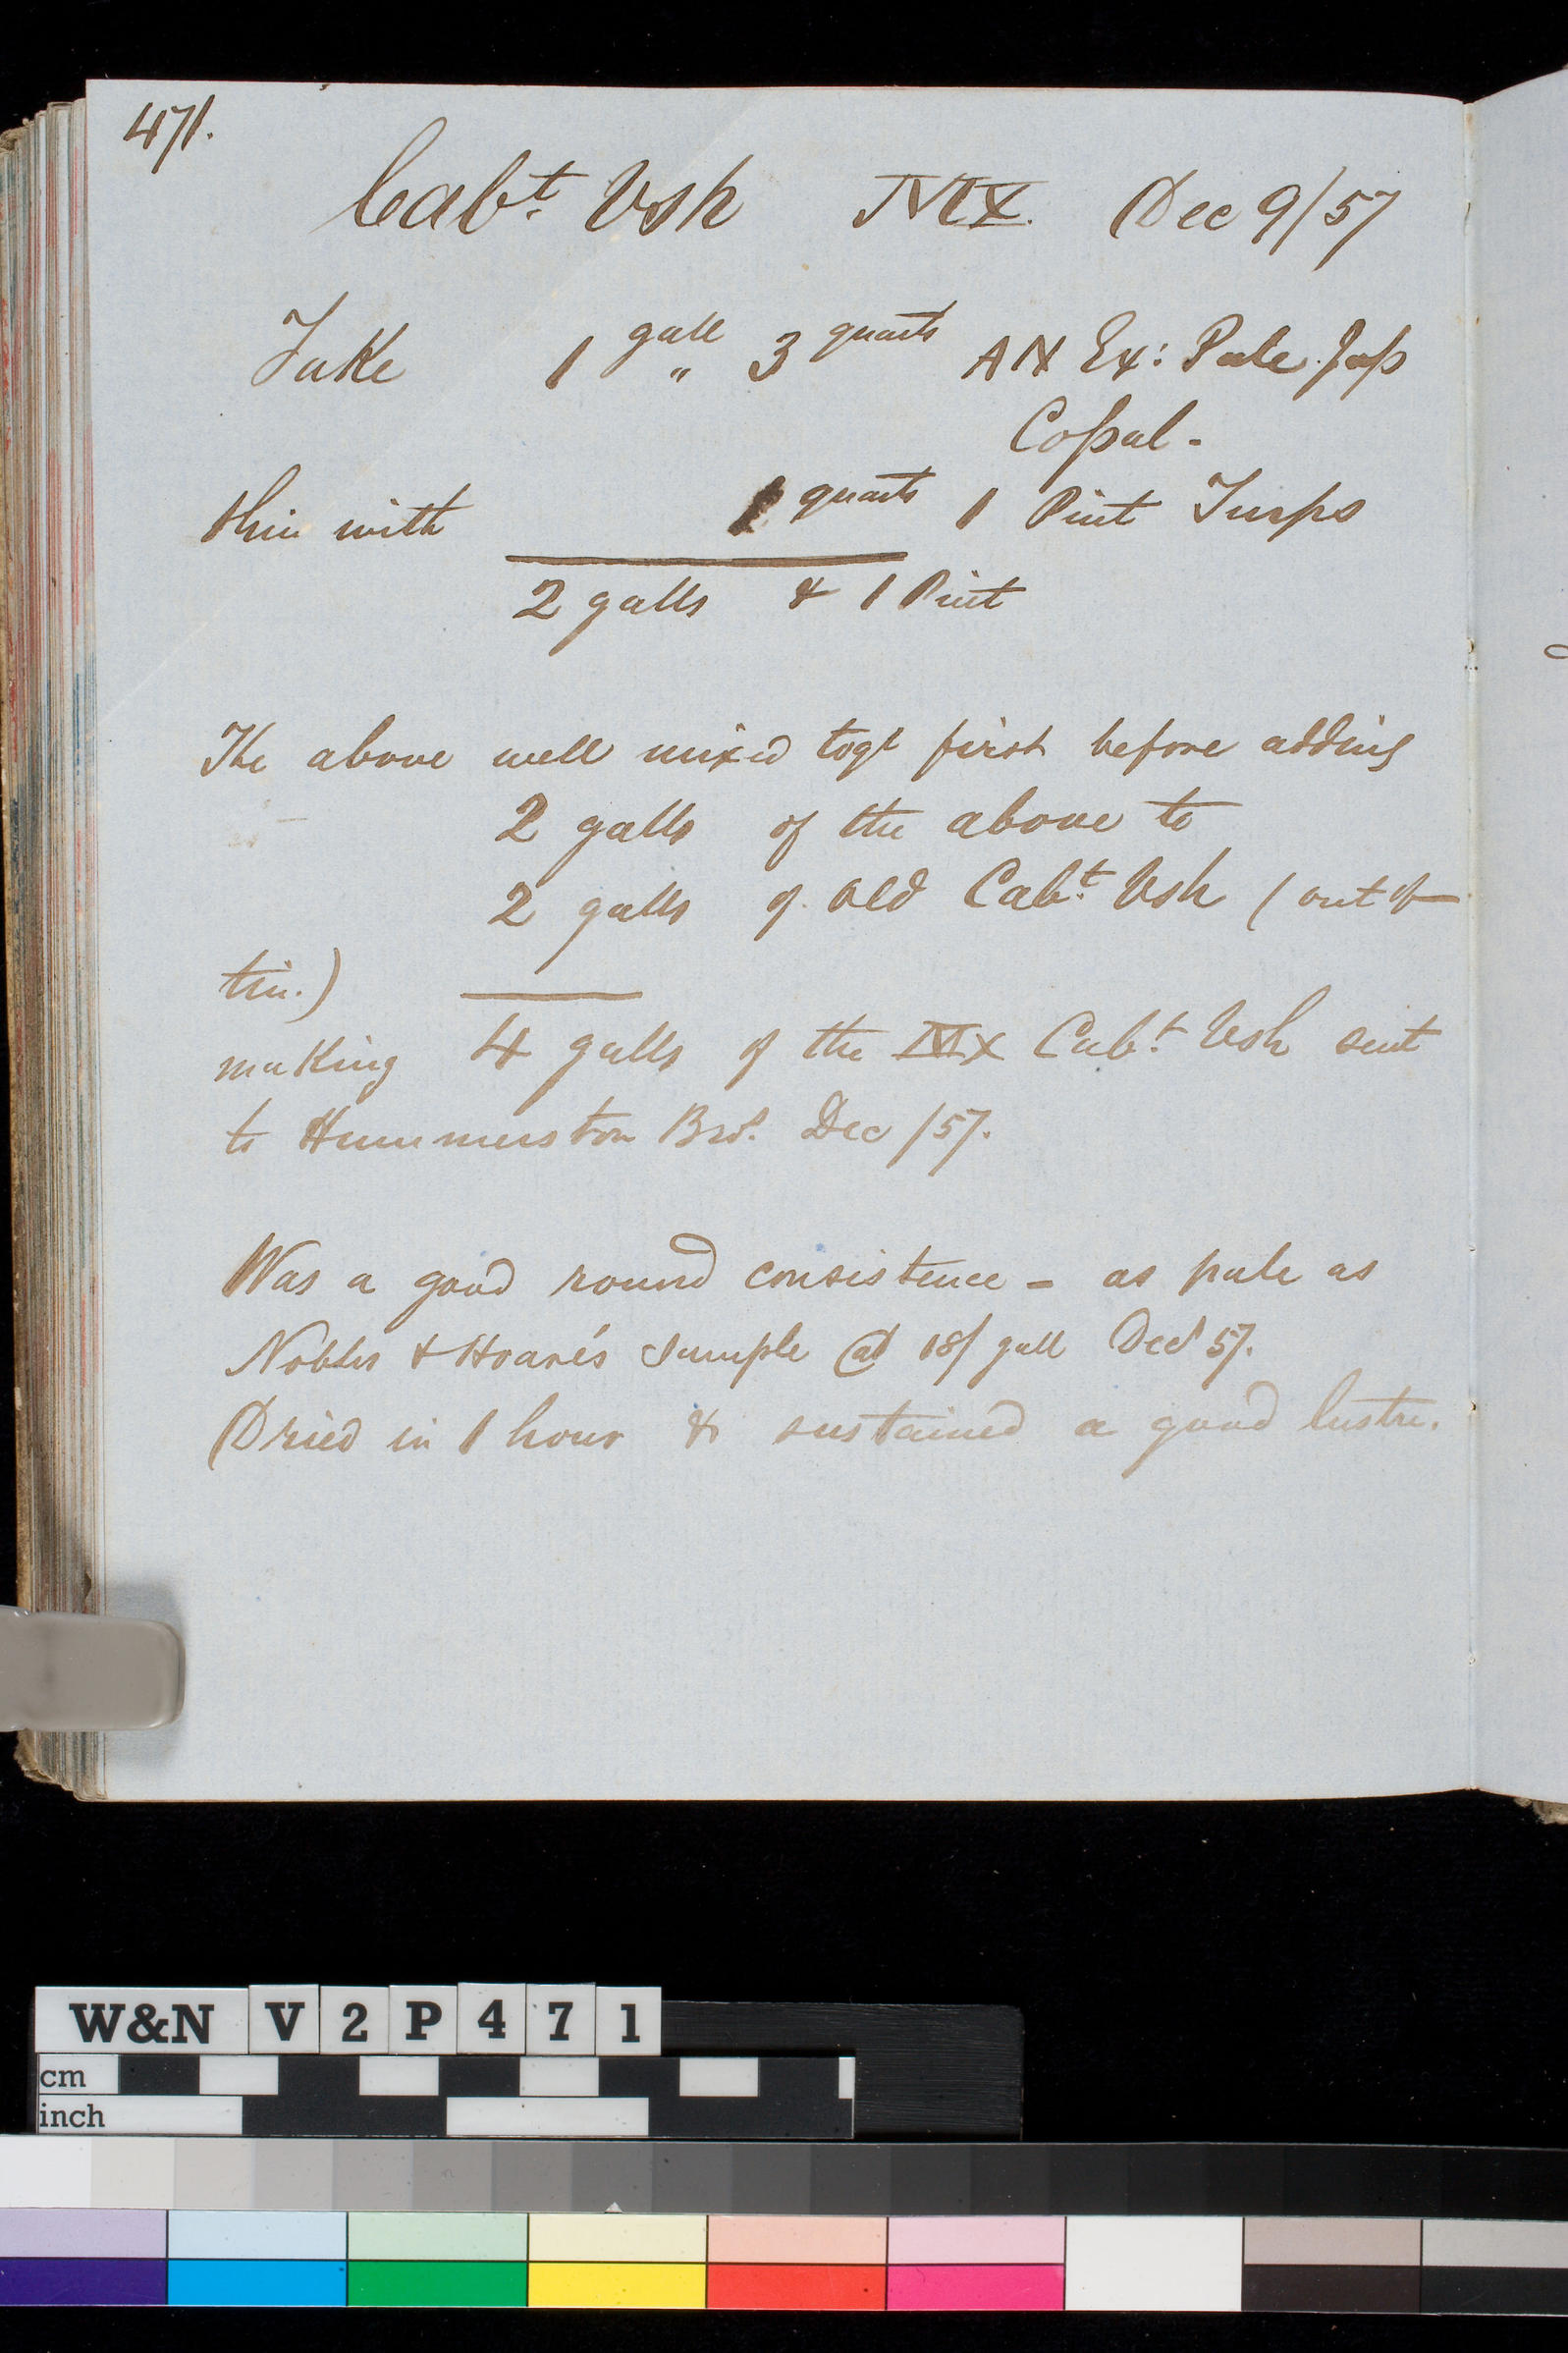 471.
Cabt. Vsh IVIX. Dec 9/57
Take 1 gall „ 3 quarts AN Ex: Pale Jap
Copal -
thin with 1 quarts 1 Pint Turps
2 galls & 1 Pint
The above well mixed togt first before adding
2 galls of the above to
2 galls of old Cabt. Vsh (out of
tin.)
making 4 galls of the Cabt. Vsh sent
to Hummerston Bros. Dec /57.
Was a good round consistence - as pale as
Nobles & Hoare's Sample @ 18/ gall Decr 57.
Dried in 1 hour & sustained a good lustre.
W&N V 2 P 4 7 1
cm
inch